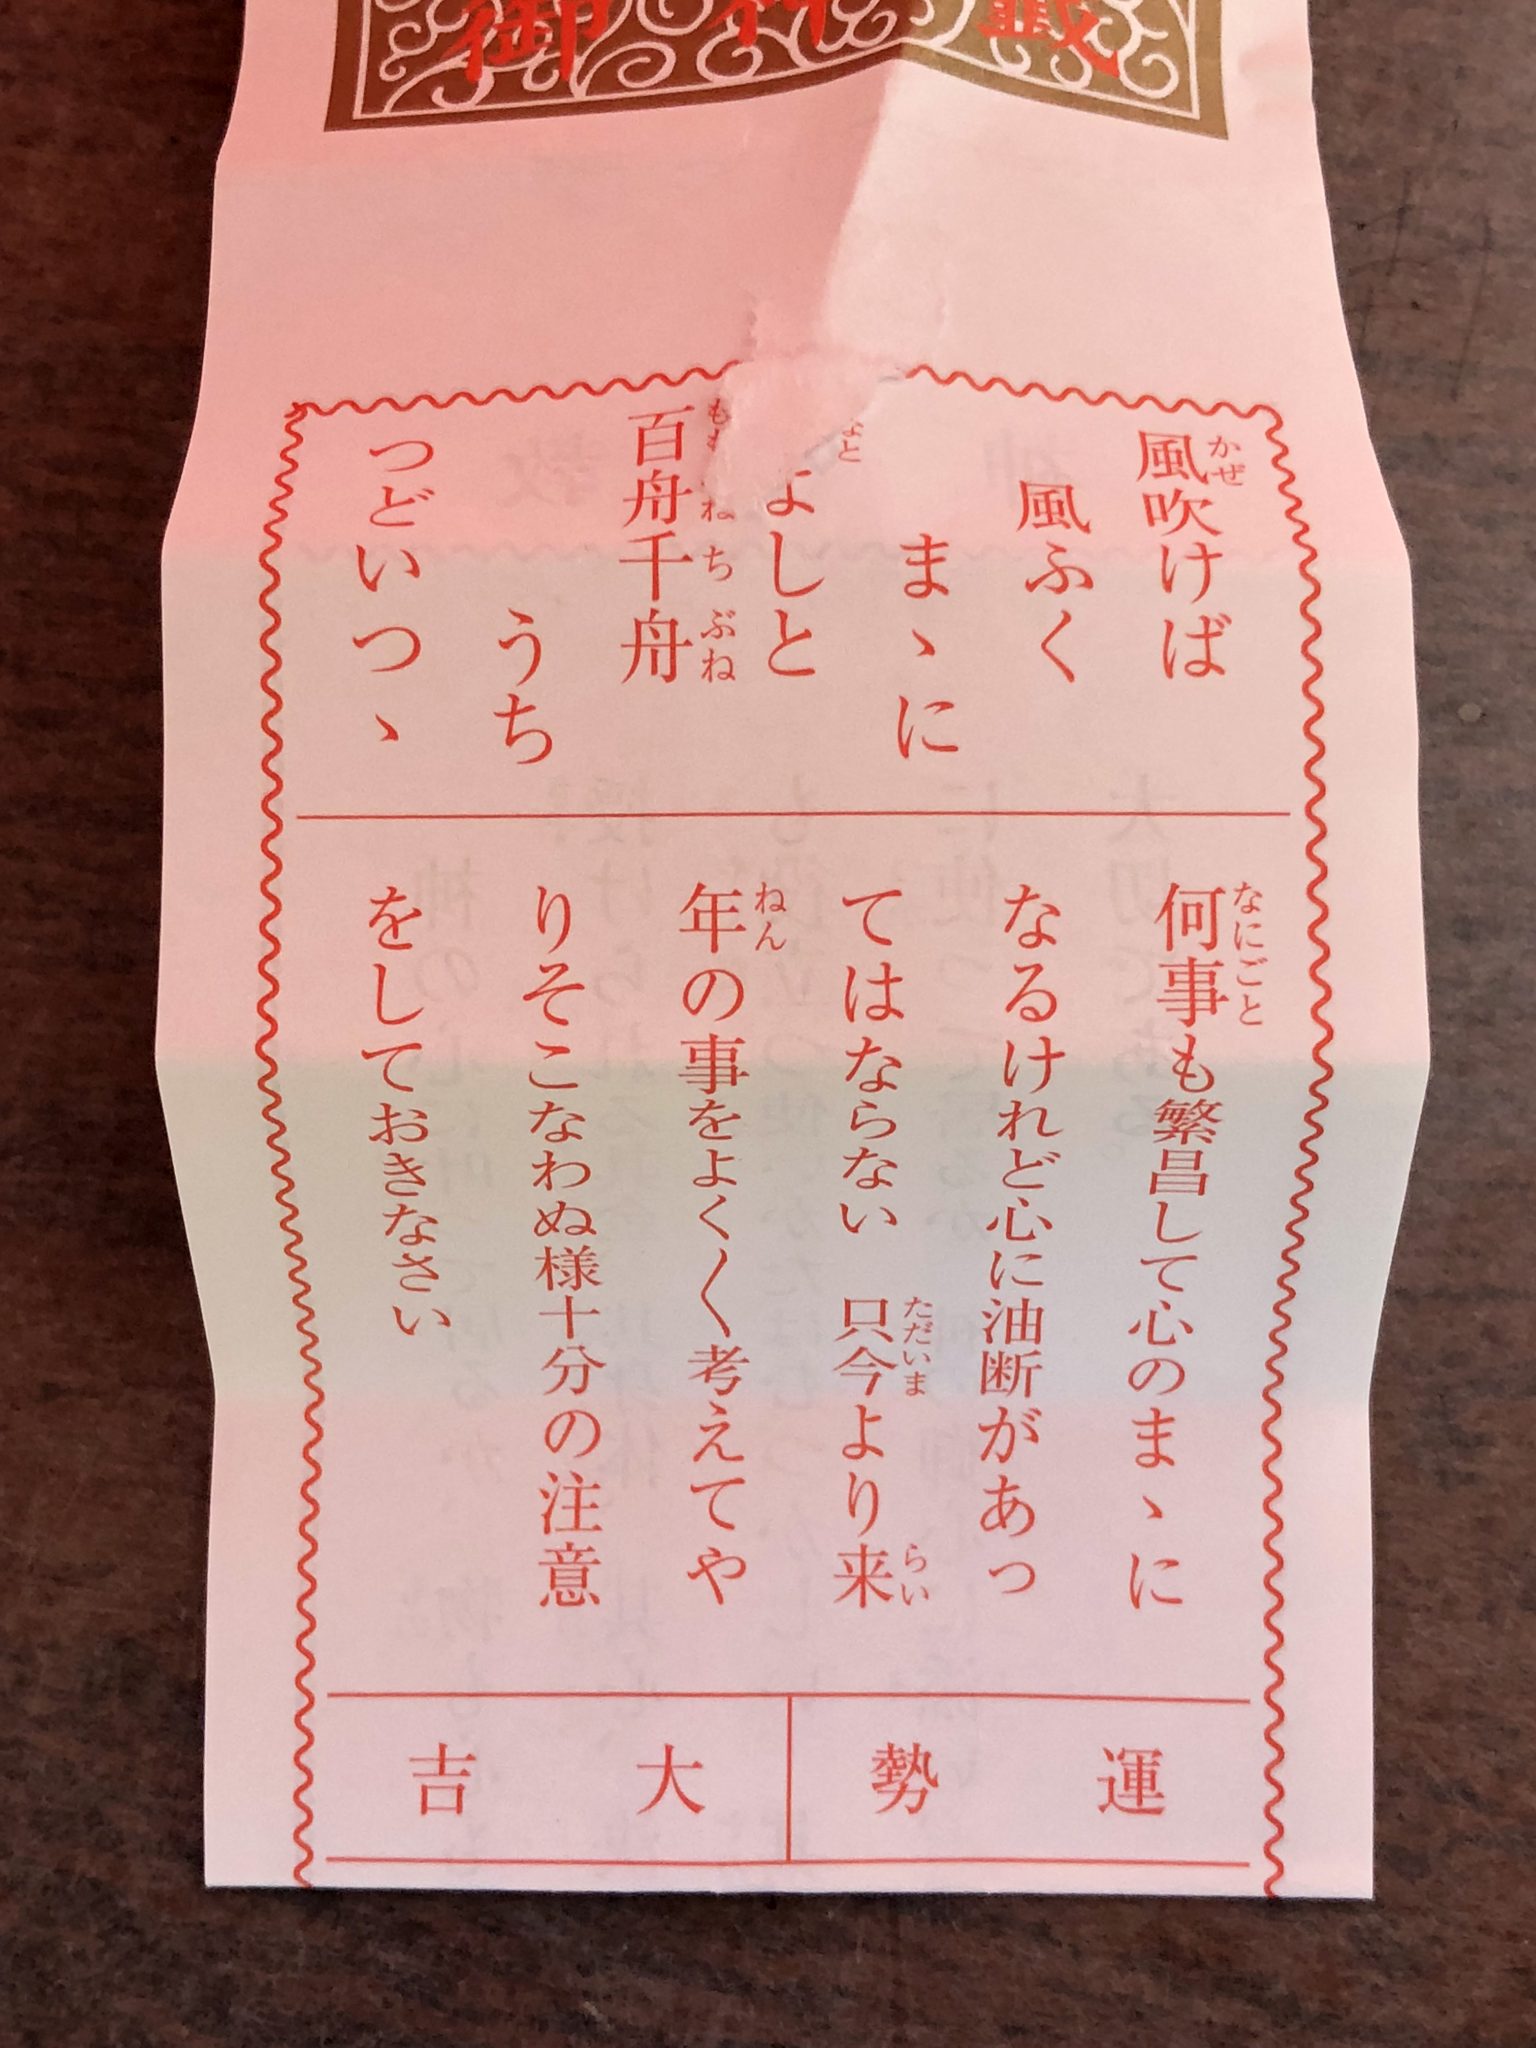 御神籤
かぜ
風吹けば
風ふく
まゝに
よしと
ちぶね
百舟千舟
うち
つどいつゝ
なにごと
何事も繁昌して心のまゝに
なるけれど心に油断があっ
ただいま らい
てはならない 只今より来
ねん
年の事をよく〱考えてや
りそこなわぬ様十分の注意
をしておきなさい
運勢
大吉